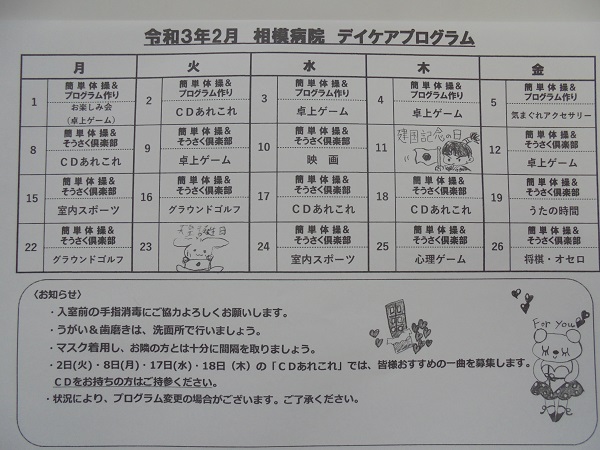 令和３年２月　相模病院　デイケアプログラム
月　火　水　木　金
1　簡単体操＆
プログラム作り
お楽しみ会
（卓上ゲーム）
2　簡単体操＆
プログラム作り
ＣＤあれこれ
3　簡単体操＆
プログラム作り
卓上ゲーム
4　簡単体操＆
プログラム作り
卓上ゲーム
5　簡単体操＆
プログラム作り
気まぐれアクセサリー
8　簡単体操＆
そうさく倶楽部
ＣＤあれこれ
9　簡単体操＆
そうさく倶楽部
卓上ゲーム
10　簡単体操＆
そうさく倶楽部
映　画
11　建国記念の日
12　簡単体操＆
そうさく倶楽部
卓上ゲーム
15　簡単体操＆
そうさく倶楽部
室内スポーツ
16　簡単体操＆
そうさく倶楽部
グラウンドゴルフ
17　簡単体操＆
そうさく倶楽部
ＣＤあれこれ
18　簡単体操＆
そうさく倶楽部
ＣＤあれこれ
19　簡単体操＆
そうさく倶楽部
うたの時間
22　簡単体操＆
そうさく倶楽部
グラウンドゴルフ
23　誕生日
24　簡単体操＆
そうさく倶楽部
室内スポーツ
25　簡単体操＆
そうさく倶楽部
心理ゲーム
26　簡単体操＆
そうさく倶楽部
将棋・オセロ
〈お知らせ〉
・入室前の手指消毒にご協力よろしくお願いします。
・うがい＆歯磨きは、洗面所で行いましょう。
・マスク着用し、お隣の方とは十分に間隔を取りましょう。
・2日(火)・8日(月)・17日(水)・18日（木）の「ＣＤあれこれ」では、皆様おすすめの一曲を募集します。
ＣＤをお持ちの方はご持参ください。
・状況により、プログラム変更の場合がございます。ご了承ください。
For You